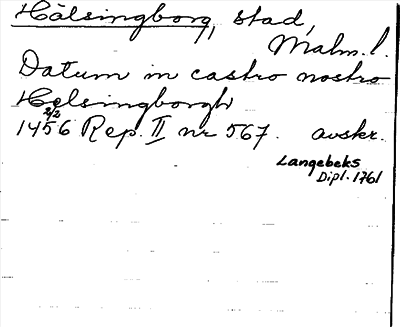 Hälsingborg, stad,
Malm. l.
Datum in castro nostro
Helsingborgh
1456 2/2 Rep. II nr 567. avskr.
Langebeks
Dipl. 1761